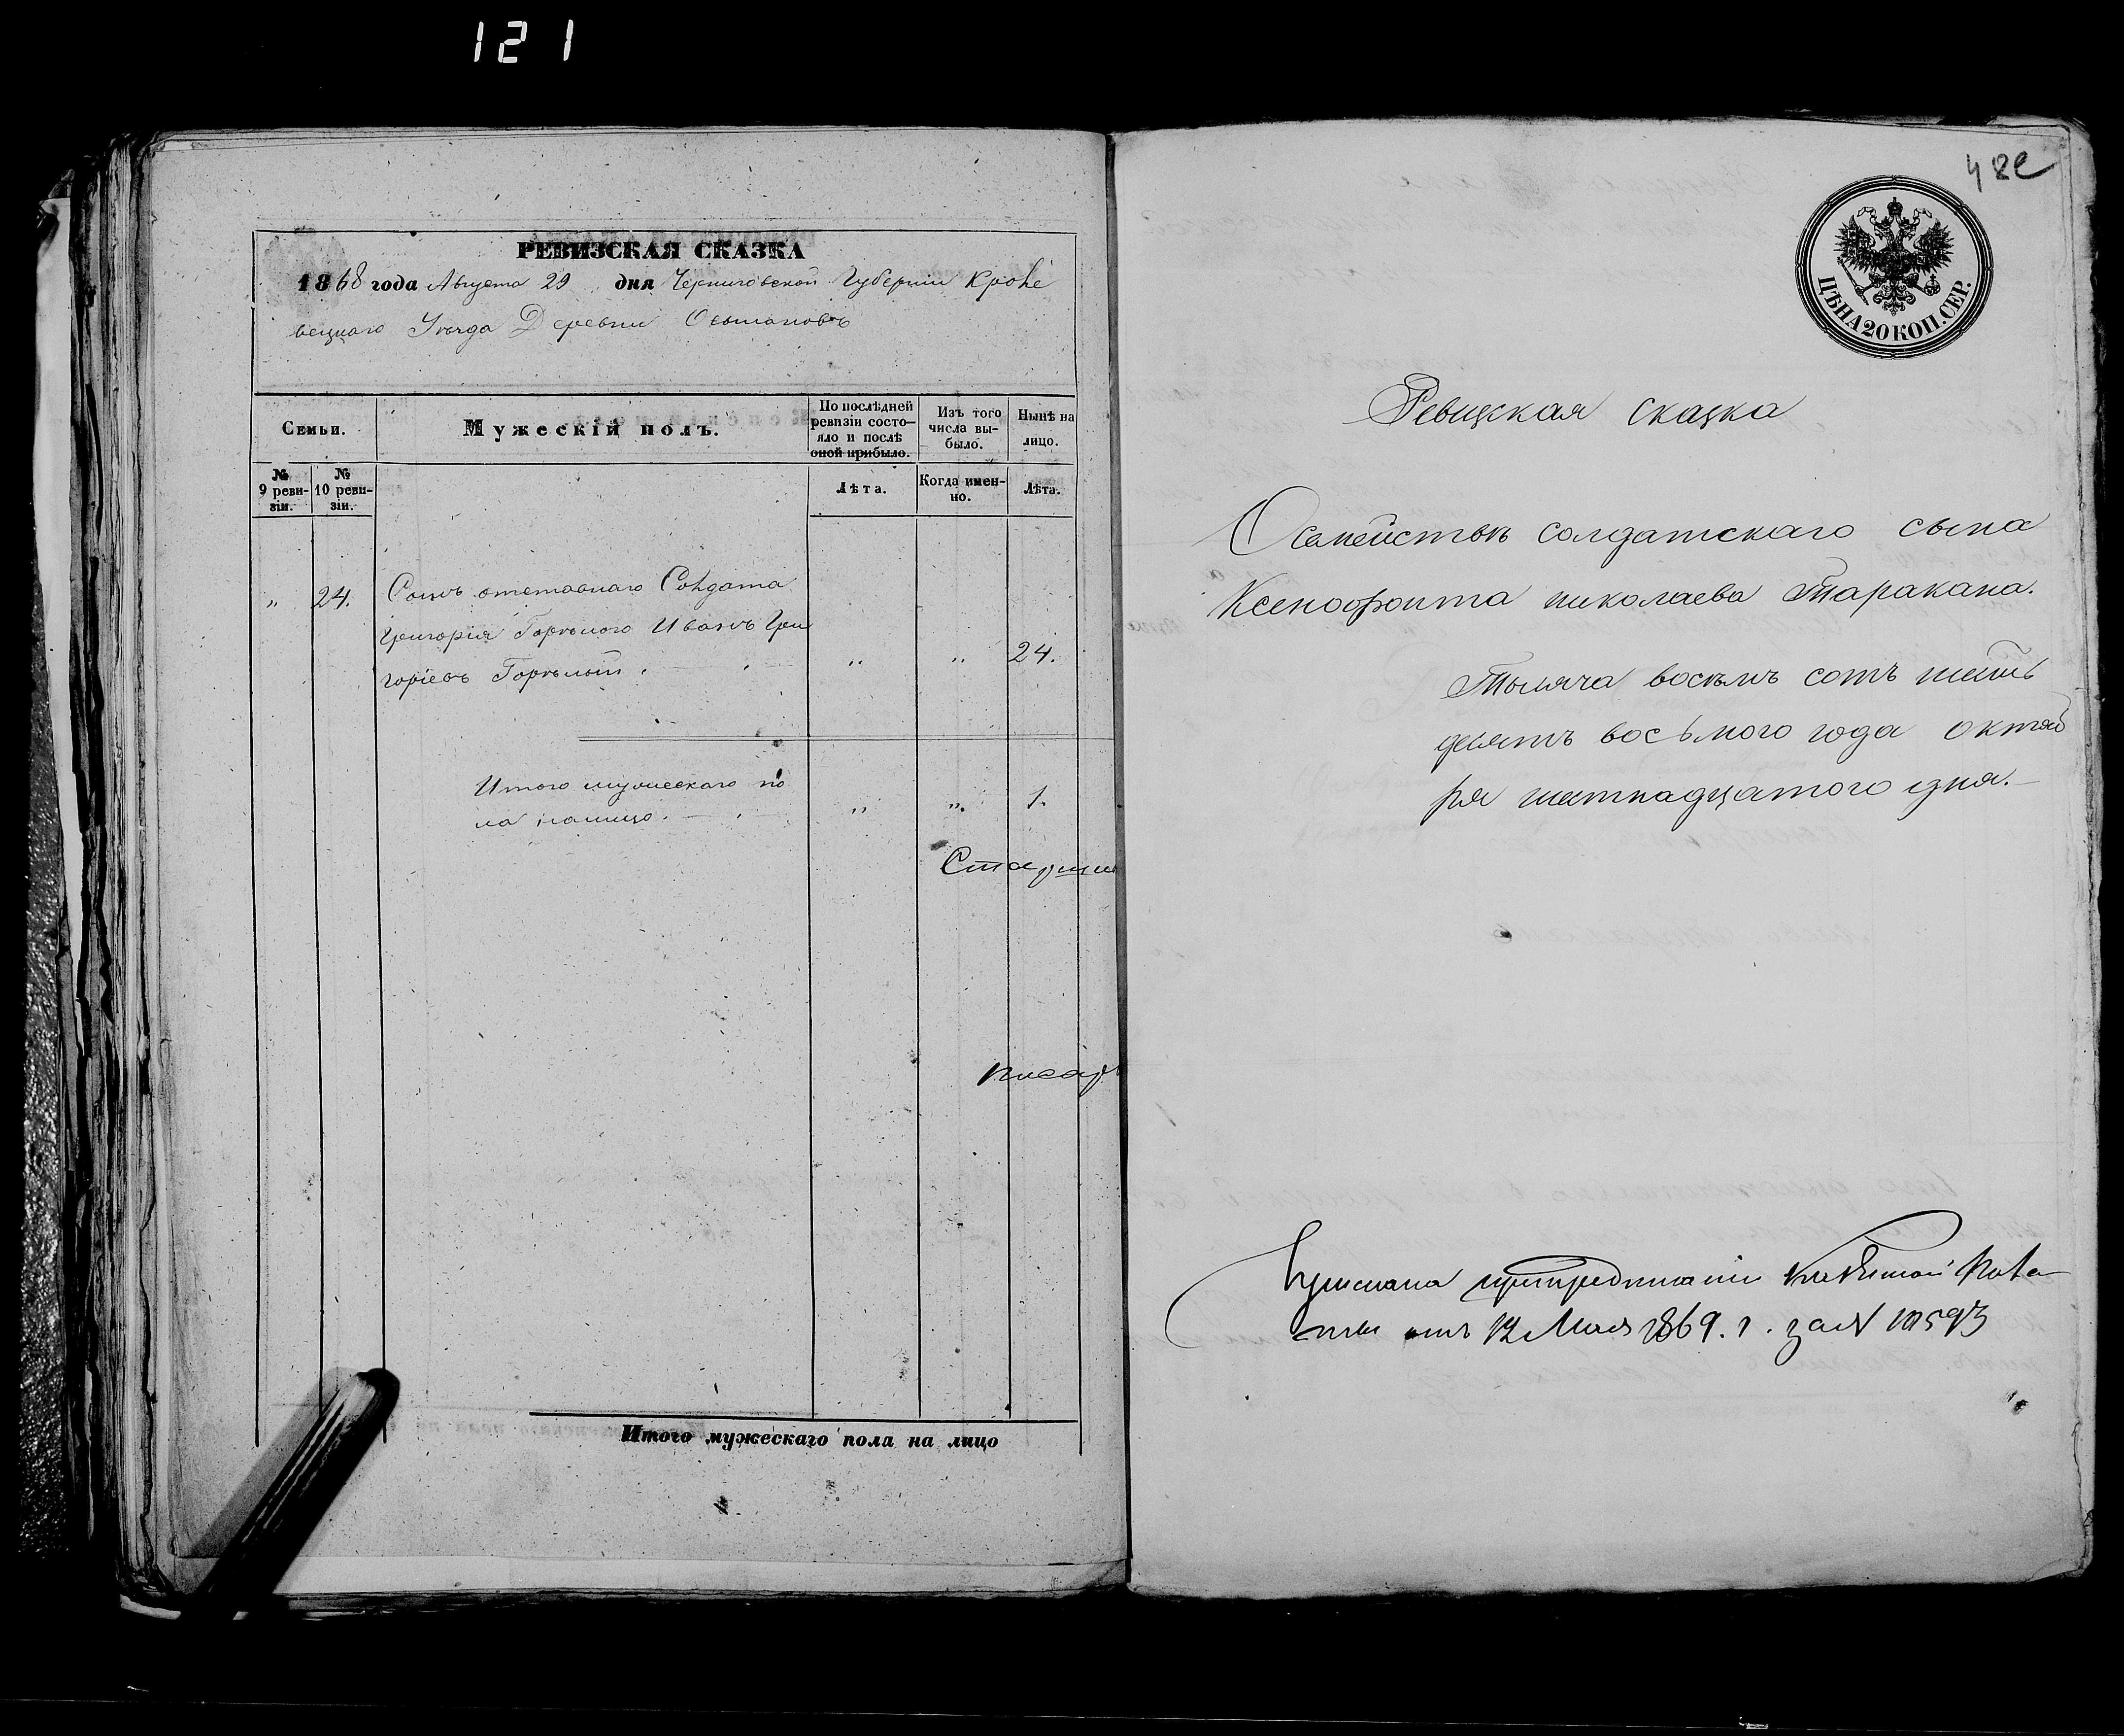 121
РЕВИЗСКАЯ СКАЗКА
1868 года Августа 29 дня Черниговской Губерніи Кроле
вецкаго Уѣзда Деревни
Семьи.
Мужескій полъ.
По послѣдней ревизіи состо-
яло и послѣ
оной прибыло.
Изъ того
числа вы-
было.
Нынѣ на
лицо.
№
9 реви-
зіи.
№
10 реви-
зіи.
Лѣта.
Когда имен-
но.
Лѣта.
" 24. Сынъ отставнаго Солдата
Григорія Горѣлого Иванъ Гри
горіевъ Горѣлый . " " 24.
Итого мужескаго по
ла налицо. " " 1.
Старши
писарь
Итого мужескаго пола на лицо
482
ЦѢНА 20 КОП. СЕР.
Ревизская сказка
О семействѣ солдатскаго сына
Ксенофонта николаева Таракана.
Тысяча восѣмъ сотъ шесть
десятъ восьмого года октяб
ря шестнадцатого дня.
Палаты отъ 12 Мая 1869. г. за №